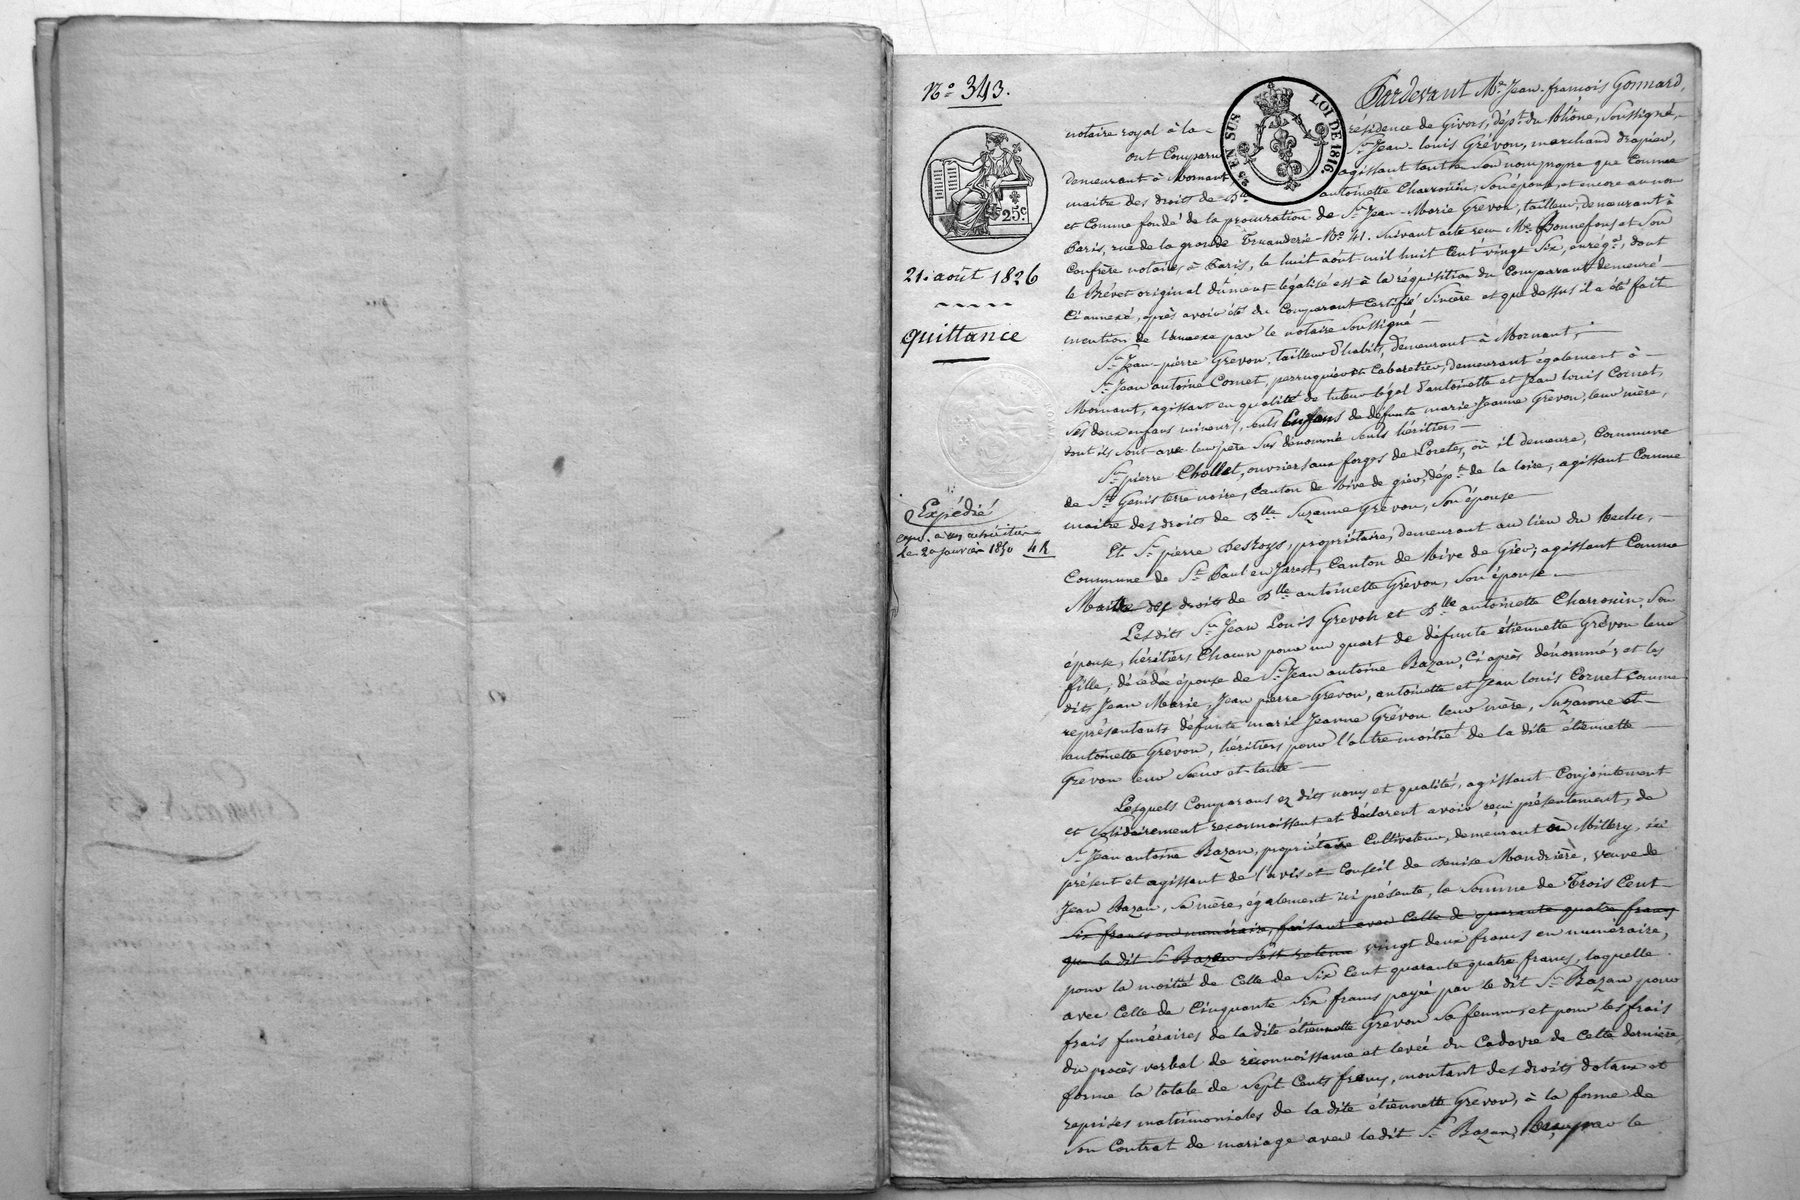 N.º 343.
25c
21. août 1826
quittance
Expédié
le 20 janvier 1850 4 R
25 EN SUS
LOI DE 1816.
Pardevant Me. Jean-françois Gonnard,
notaire royal à la résidence de Givors, dépt. du Rhône, soussigné,
ont Comparu Sr. Jean-louis Grévon, marchand drapier,
demeurant à Mornant agissant tant en son nom propre que Comme
maitre des droits de Dlle antoinette Charronin, son épouse, et encore au nom
et Comme fondé de la procuration de Sr. Jean-Marie Grevon, tailleur, demeurant à
Paris, rue de la grande Truanderie No. 41. Suivant acte reçu Me. Bonnefons et Son
Confrère notaires à Paris, le huit août mil huit Cent vingt Six, enrégé., dont
le Brévet original dûment légalisé est à la réquisition du Comparant demeuré
Ci annexé, après avoir été du Comparant Certifié Sincère et que dessus il a été fait
mention de l'annexe par le notaire soussigné
Sr. Jean-pierre Grevon, tailleur d'habits, demeurant à Mornant,
Sr. Jean antoine Cornet, perruquier et Cabaretier, demeurant également à
Mornant, agissant en qualité de tuteur légal d'antoinette et Jean louis Cornet,
Ses deux enfans mineurs, seuls Enfans de défunte marie Jeanne Grevon, leur mère,
dont ils sont avec leur père sus dénommé seuls héritiers,
Sr. pierre Chollet, ouvrier aux forges de Lorette, où il demeure, Commune
de St. Genis terre noire, Canton de Rive de gier, dépt. de la loire, agissant Comme
maitre des droits de Dlle Suzanne Grévon, son épouse
Et Sr. pierre Deskoys, propriétaire, demeurant au lieu du Reclu,
Commune de St. Paul en Jarest, Canton de Rive de Gier; agissant Comme
Maitre des droits de Dlle antoinette Grévon, Son épouse
Lesdits Sr. Jean Louis Grevon et Dlle antoinette Charronin, Son
épouse, héritiers Chacun pour un quart de défunte étiennette Grévon leur
fille, décédée épouse de Sr. Jean antoine Bazan, Ci après dénommé; et les
dits Jean Marie, Jean pierre Grevon, antoinette et Jean louis Cornet Comme
représentants défunte marie Jeanne Grévon leur mère, Suzanne et
antoinette Grevon, héritiers pour l'autre moitié de la dite étiennette
Grevon leur Sœur et tante
Lesquels Comparans ez dits noms et qualités, agissant Conjointement
et Solidairement reconnoissent et déclarent avoir reçu présentement, de
Sr. Jean antoine Bazan, propriétaire Cultivateur, demeurant à Millery, ici
présent et agissant de l'avis et Conseil de Denise Mandrière, veuve de
Jean Bazan, Sa mère, également ici présente, la Somme de Trois Cent
Six francs en numéraire, faisant avec Celle de quarante quatre francs
que le dit Sr. Bazan s'est retenu vingt deux francs en numéraire,
pour la moitié de Celle de Six Cent quarante quatre francs, laquelle
avec Celle de Cinquante Six francs payée par le dit Sr. Bazan pour
frais funéraires de la dite étiennette Grevon Sa femme, et pour les frais
du procès verbal de reconnoissance et levée du Cadavre de Cette dernière,
forme la totale de Sept Cents francs, montant des droits dotaux et
reprises matrimoniales de la dite étiennette Grevon, à la forme de
Son Contrat de mariage avec ledit Sr. Bazan, Reçu par le